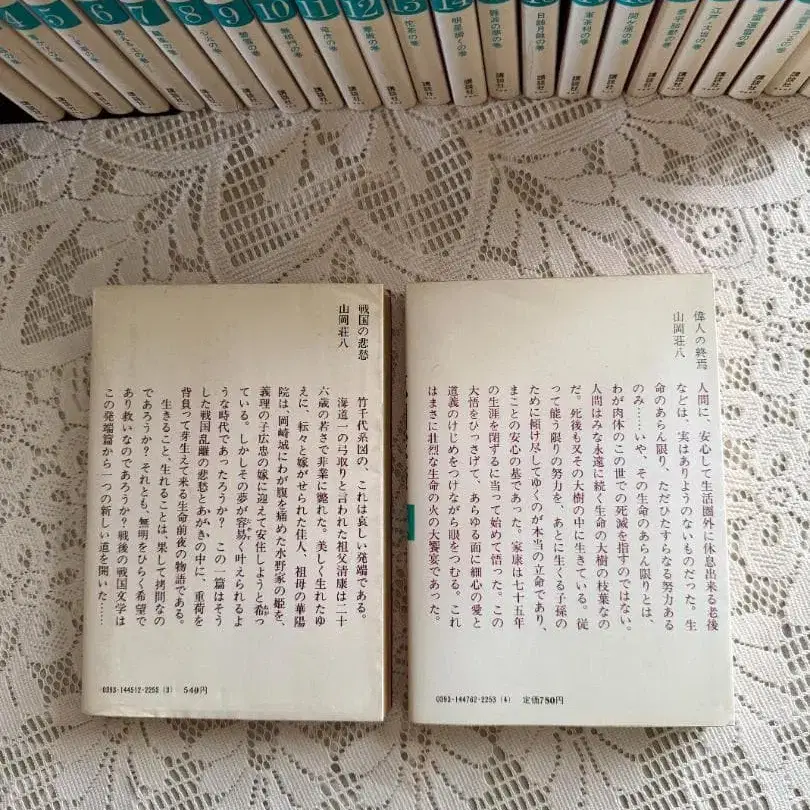 4
5
6
7
8
9
10
11
12
13
14
心火の巻
無相門の巻
竜虎の巻
軍茶利の巻
関ケ原の巻
江戸・大坂の巻
講談社
講談社
講談社
講談社
講談社
講談社
講談社
講談社
講談社
講談社
戦国の悲愁
山岡荘八
竹千代系図の、これは哀しい発端である。
海道一の弓取りと言われた祖父清康は二十
六歳の若さで非業に斃れた。美しく生れたゆ
えに、転々と嫁がせられた佳人、祖母の華陽
院は、岡崎城にわが腹を痛めた水野家の姫を、
義理の子広忠の嫁に迎えて安住しようと希っ
ている。しかしその夢が容易く叶えられるよ
うな時代であったろうか？　この一篇はそう
した戦国乱離の悲愁とあがきの中に、重荷を
背負って芽生えて来る生命前夜の物語である。
生きること、生れることは、果して拷問なの
であろうか？それとも、無明をひらく希望で
あり救いなのであろうか？戦後の戦国文学は
この発端篇から一つの新しい道を開いた……
0393-144512-2253 (3)　540円
偉人の終焉
山岡荘八
人間に、安心して生活圏外に休息出来る老後
などは、実はありようのないものだった。生
命のあらん限り、ただひたすらなる努力ある
のみ……いや、その生命のあらん限りとは、
わが肉体のこの世での死滅を指すのではない。
人間はみな永遠に続く生命の大樹の枝葉なの
だ。死後も又その大樹の中に生きている。従
って能う限りの努力を、あとに生くる子孫の
ために傾け尽してゆくのが本当の立命であり、
まことの安心の基であった。家康は七十五年
の生涯を閉ずるに当って始めて悟った。この
大悟をひっさげて、あらゆる面に細心の愛と
道義のけじめをつけながら眼をつむる。これ
はまさに壮烈な生命の火の大饗宴であった。
0393-144762-2253 (4)　定価780円